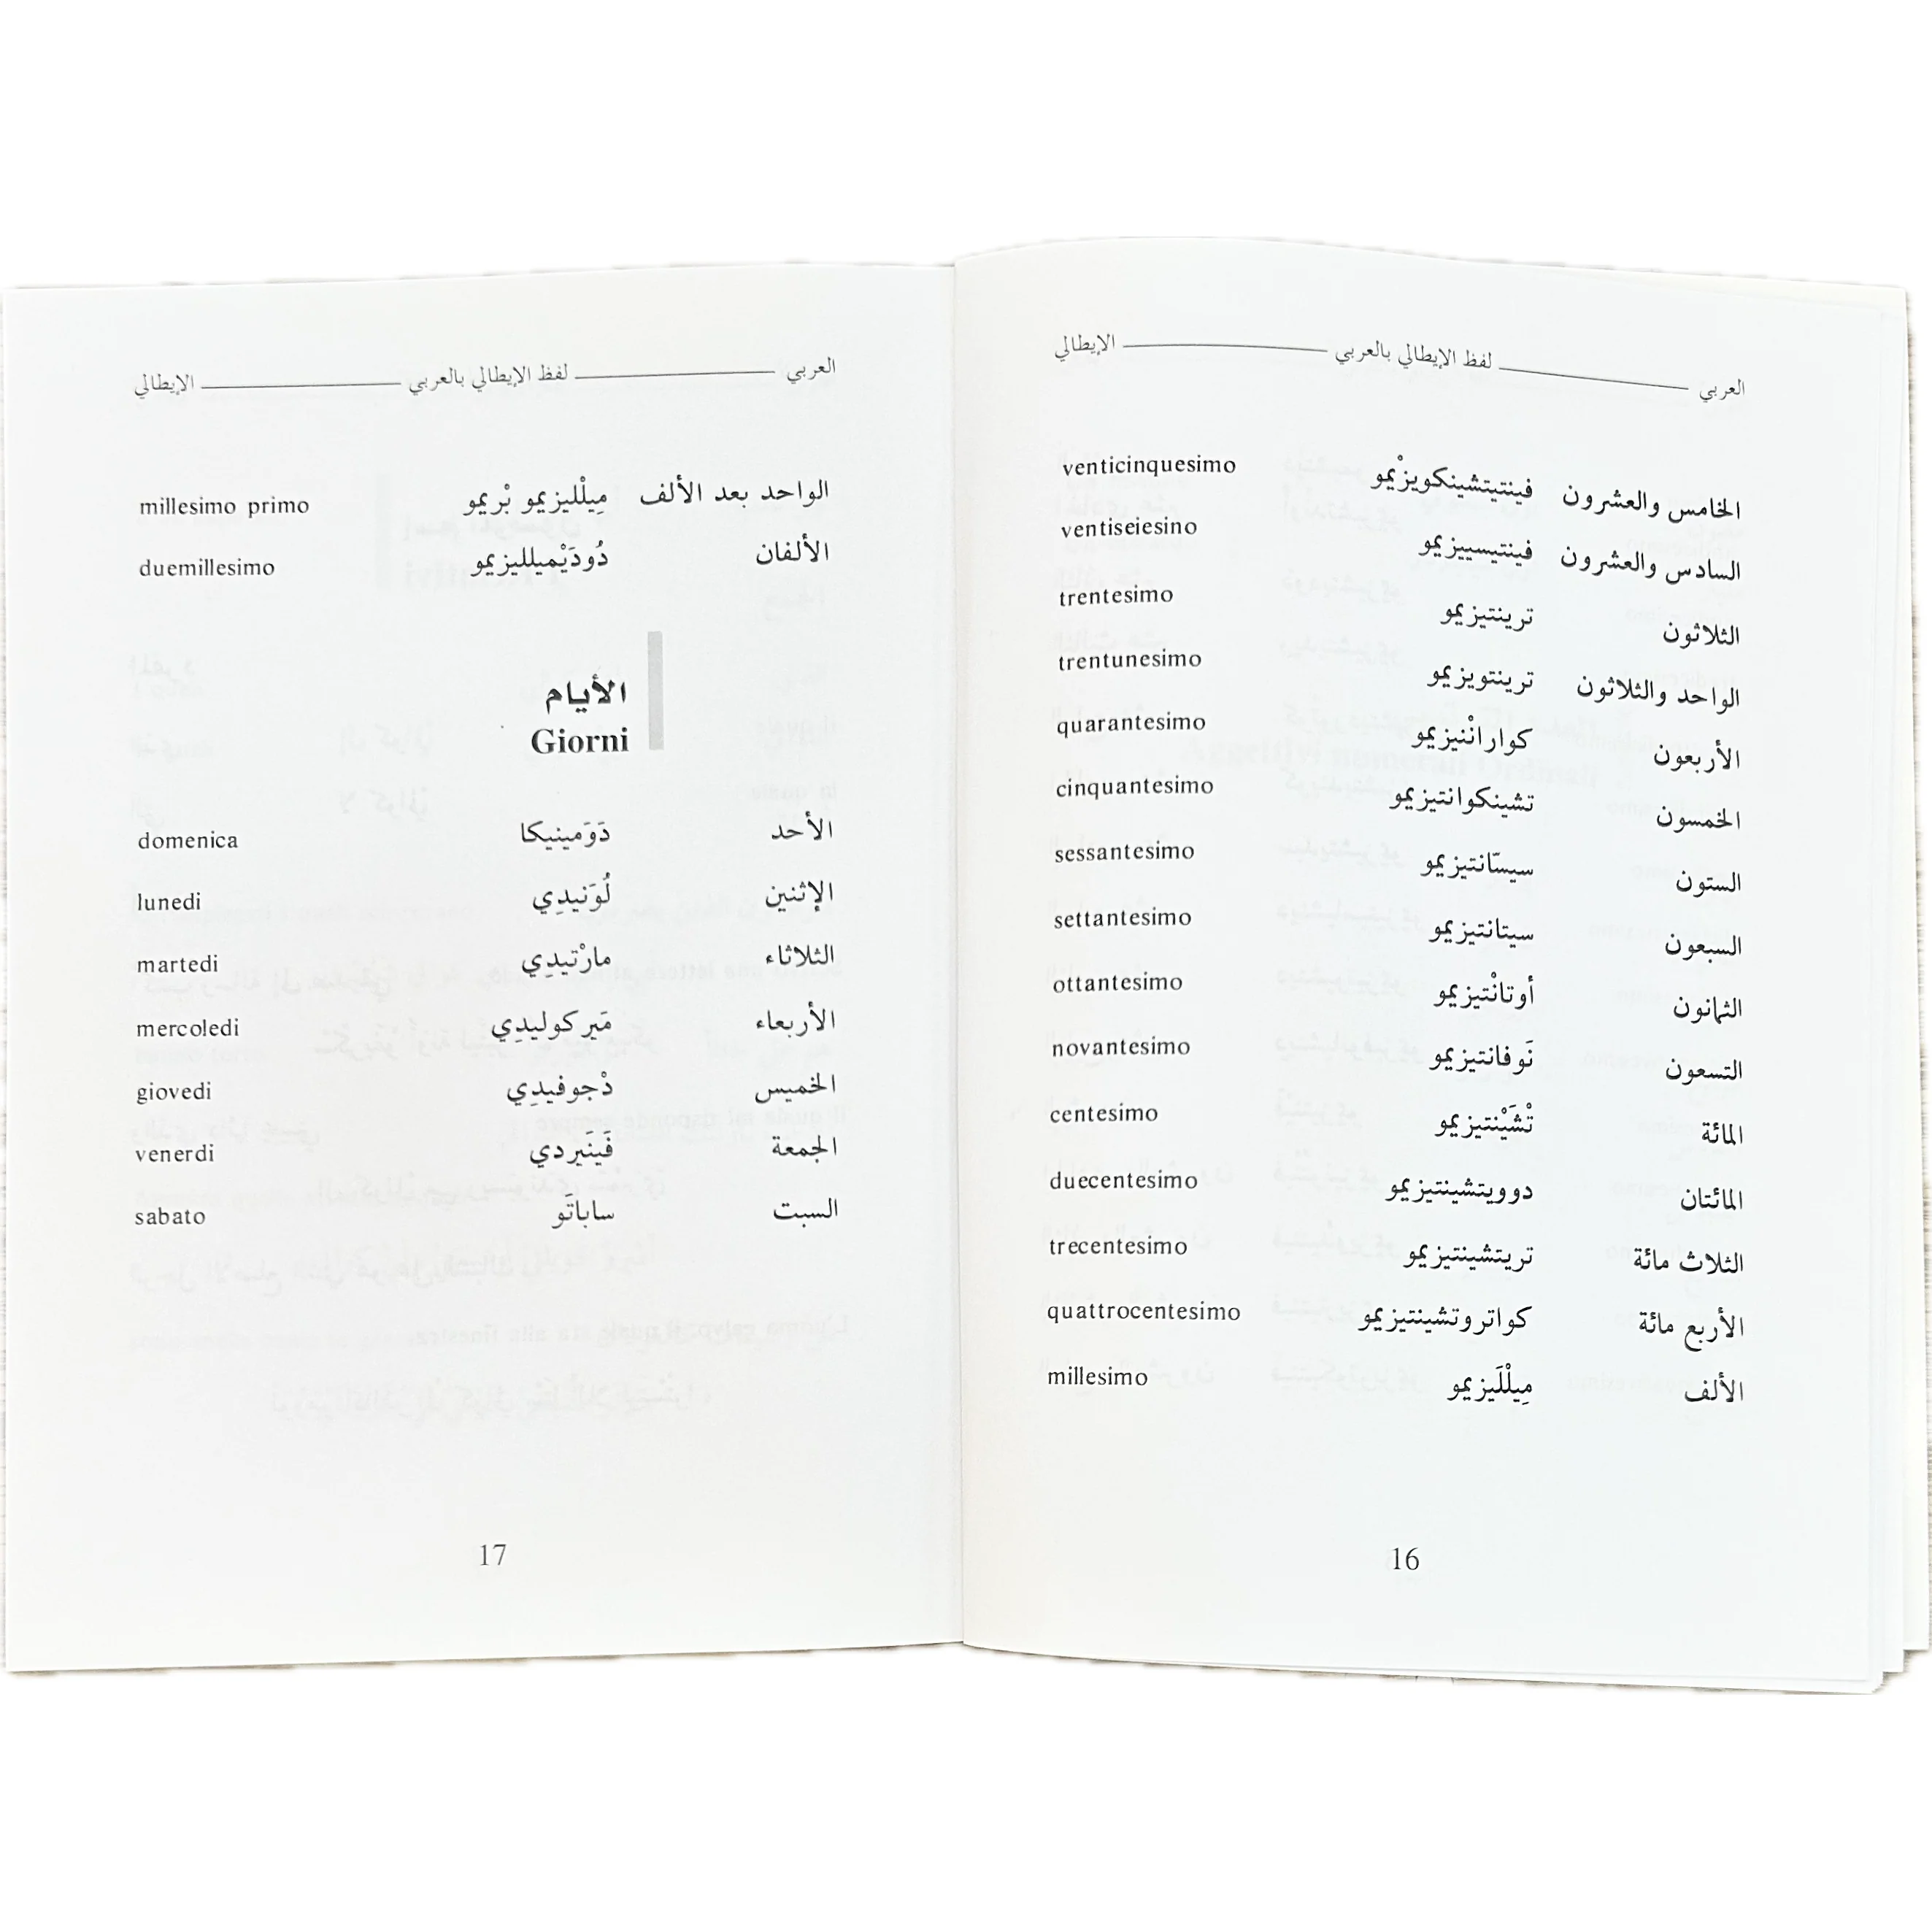 العربي ــــــ لفظ الإيطالي بالعربي ــــــ الإيطالي
الخامس والعشرون فينتيتشينكويزْيمو venticinquesimo
السادس والعشرون فينتيسييزيمو ventiseiesino
الثلاثون ترينتيزيمو trentesimo
الواحد والثلاثون ترينتويزيمو trentunesimo
الأربعون كوارانْتيزيمو quarantesimo
الخمسون تشينكوانتيزيمو cinquantesimo
الستون سيسّانتيزيمو sessantesimo
السبعون سيتانتيزيمو settantesimo
الثمانون أوتانْتيزيمو ottantesimo
التسعون نَوفانتيزيمو novantesimo
المائة تْشَيْنتيزيمو centesimo
المائتان دوويتشينتيزيمو duecentesimo
الثلاث مائة تريتشينتيزيمو trecentesimo
الأربع مائة كواتروتشينتيزيمو quattrocentesimo
الألف مِيلْلَيزيمو millesimo
16
العربي ــــــ لفظ الإيطالي بالعربي ــــــ الإيطالي
الواحد بعد الألف مِيلْليزيمو بْريمو millesimo primo
الألفان دُودَيْميلليزيمو duemillesimo
الأيام
Giorni
الأحد دَوَمينيكا domenica
الإثنين لُوَنيدِي lunedi
الثلاثاء مارْتيدِي martedi
الأربعاء مَيركوليدِي mercoledi
الخميس دْجوفيدِي giovedi
الجمعة فَينَيردي venerdi
السبت ساباتَو sabato
17